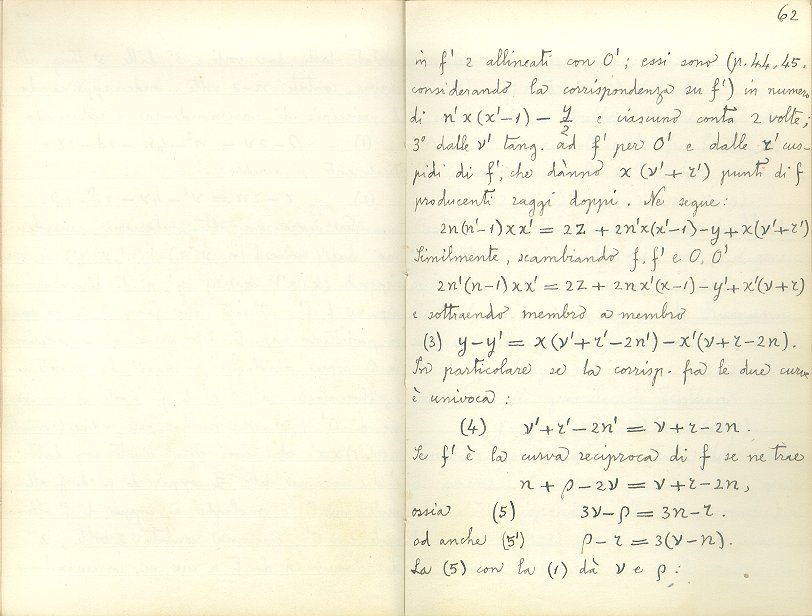 62
in f' 2 allineati con O'; essi sono (p. 44, 45.
considerando la corrispondenza su f') in numero
di n'x(x'-1) - y/2 e ciascuno conta 2 volte;
3° dalle ν' tang. ad f' per O' e dalle r' cus-
pidi di f', che dànno x(ν'+r') punti di f
producenti raggi doppi. Ne segue:
2n(n'-1)xx' = 2z + 2n'x(x'-1) - y + x(ν'+r')
Similmente, scambiando f, f' e O, O'
2n'(n-1)xx' = 2z + 2nx'(x-1) - y' + x'(ν+r)
e sottraendo membro a membro
(3) y-y' = x(ν'+r'-2n') - x'(ν+r-2n).
In particolare se la corrisp. fra le due curve
è univoca:
(4) ν'+r'-2n' = ν+r-2n.
Se f' è la curva reciproca di f se ne trae
n+ρ-2ν = ν+r-2n,
ossia (5) 3ν-ρ = 3n-r.
od anche (5') ρ-r = 3(ν-n).
La (5) con la (1) dà ν e ρ: